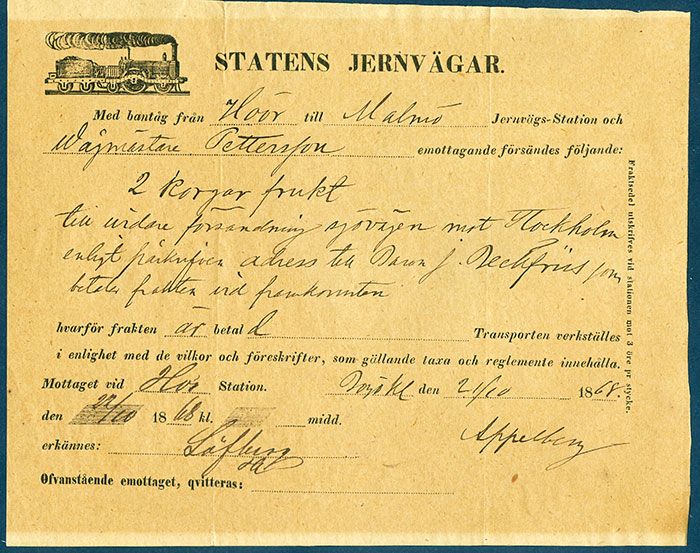 STATENS JERNVÄGAR.
Med bantåg från Höör till Malmö Jernvägs-Station och
Wågmästare Pettersson emottagande försändes följande:
2 Korgar frukt
till vidare försändning sjövägen mot Stockholm
enligt påskrifven adress till Baron J. Beckfriis som
betalar frakten vid framkomsten
hvarför frakten är betald Transporten verkställes
i enlighet med de vilkor och föreskrifter, som gällande taxa och reglemente innehålla.
Mottaget vid Höör Station. den 21/10 1868.
den 22/10 1868 kl. midd.
Appelberg
erkännes: Löfberg
Ofvanstående emottaget, qvitteras:
Fraktsedel utskrifves vid stationen mot 3 öre pr stycke.